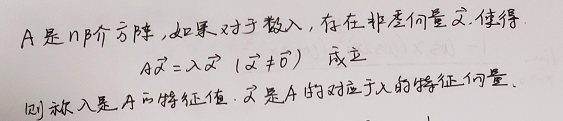 A是n阶方阵,如果对于数λ,存在非零向量α⃗.使得.
Aα⃗=λα⃗ (α⃗≠0⃗) 成立
则称λ是A的特征值.α⃗是A的对应于λ的特征向量.